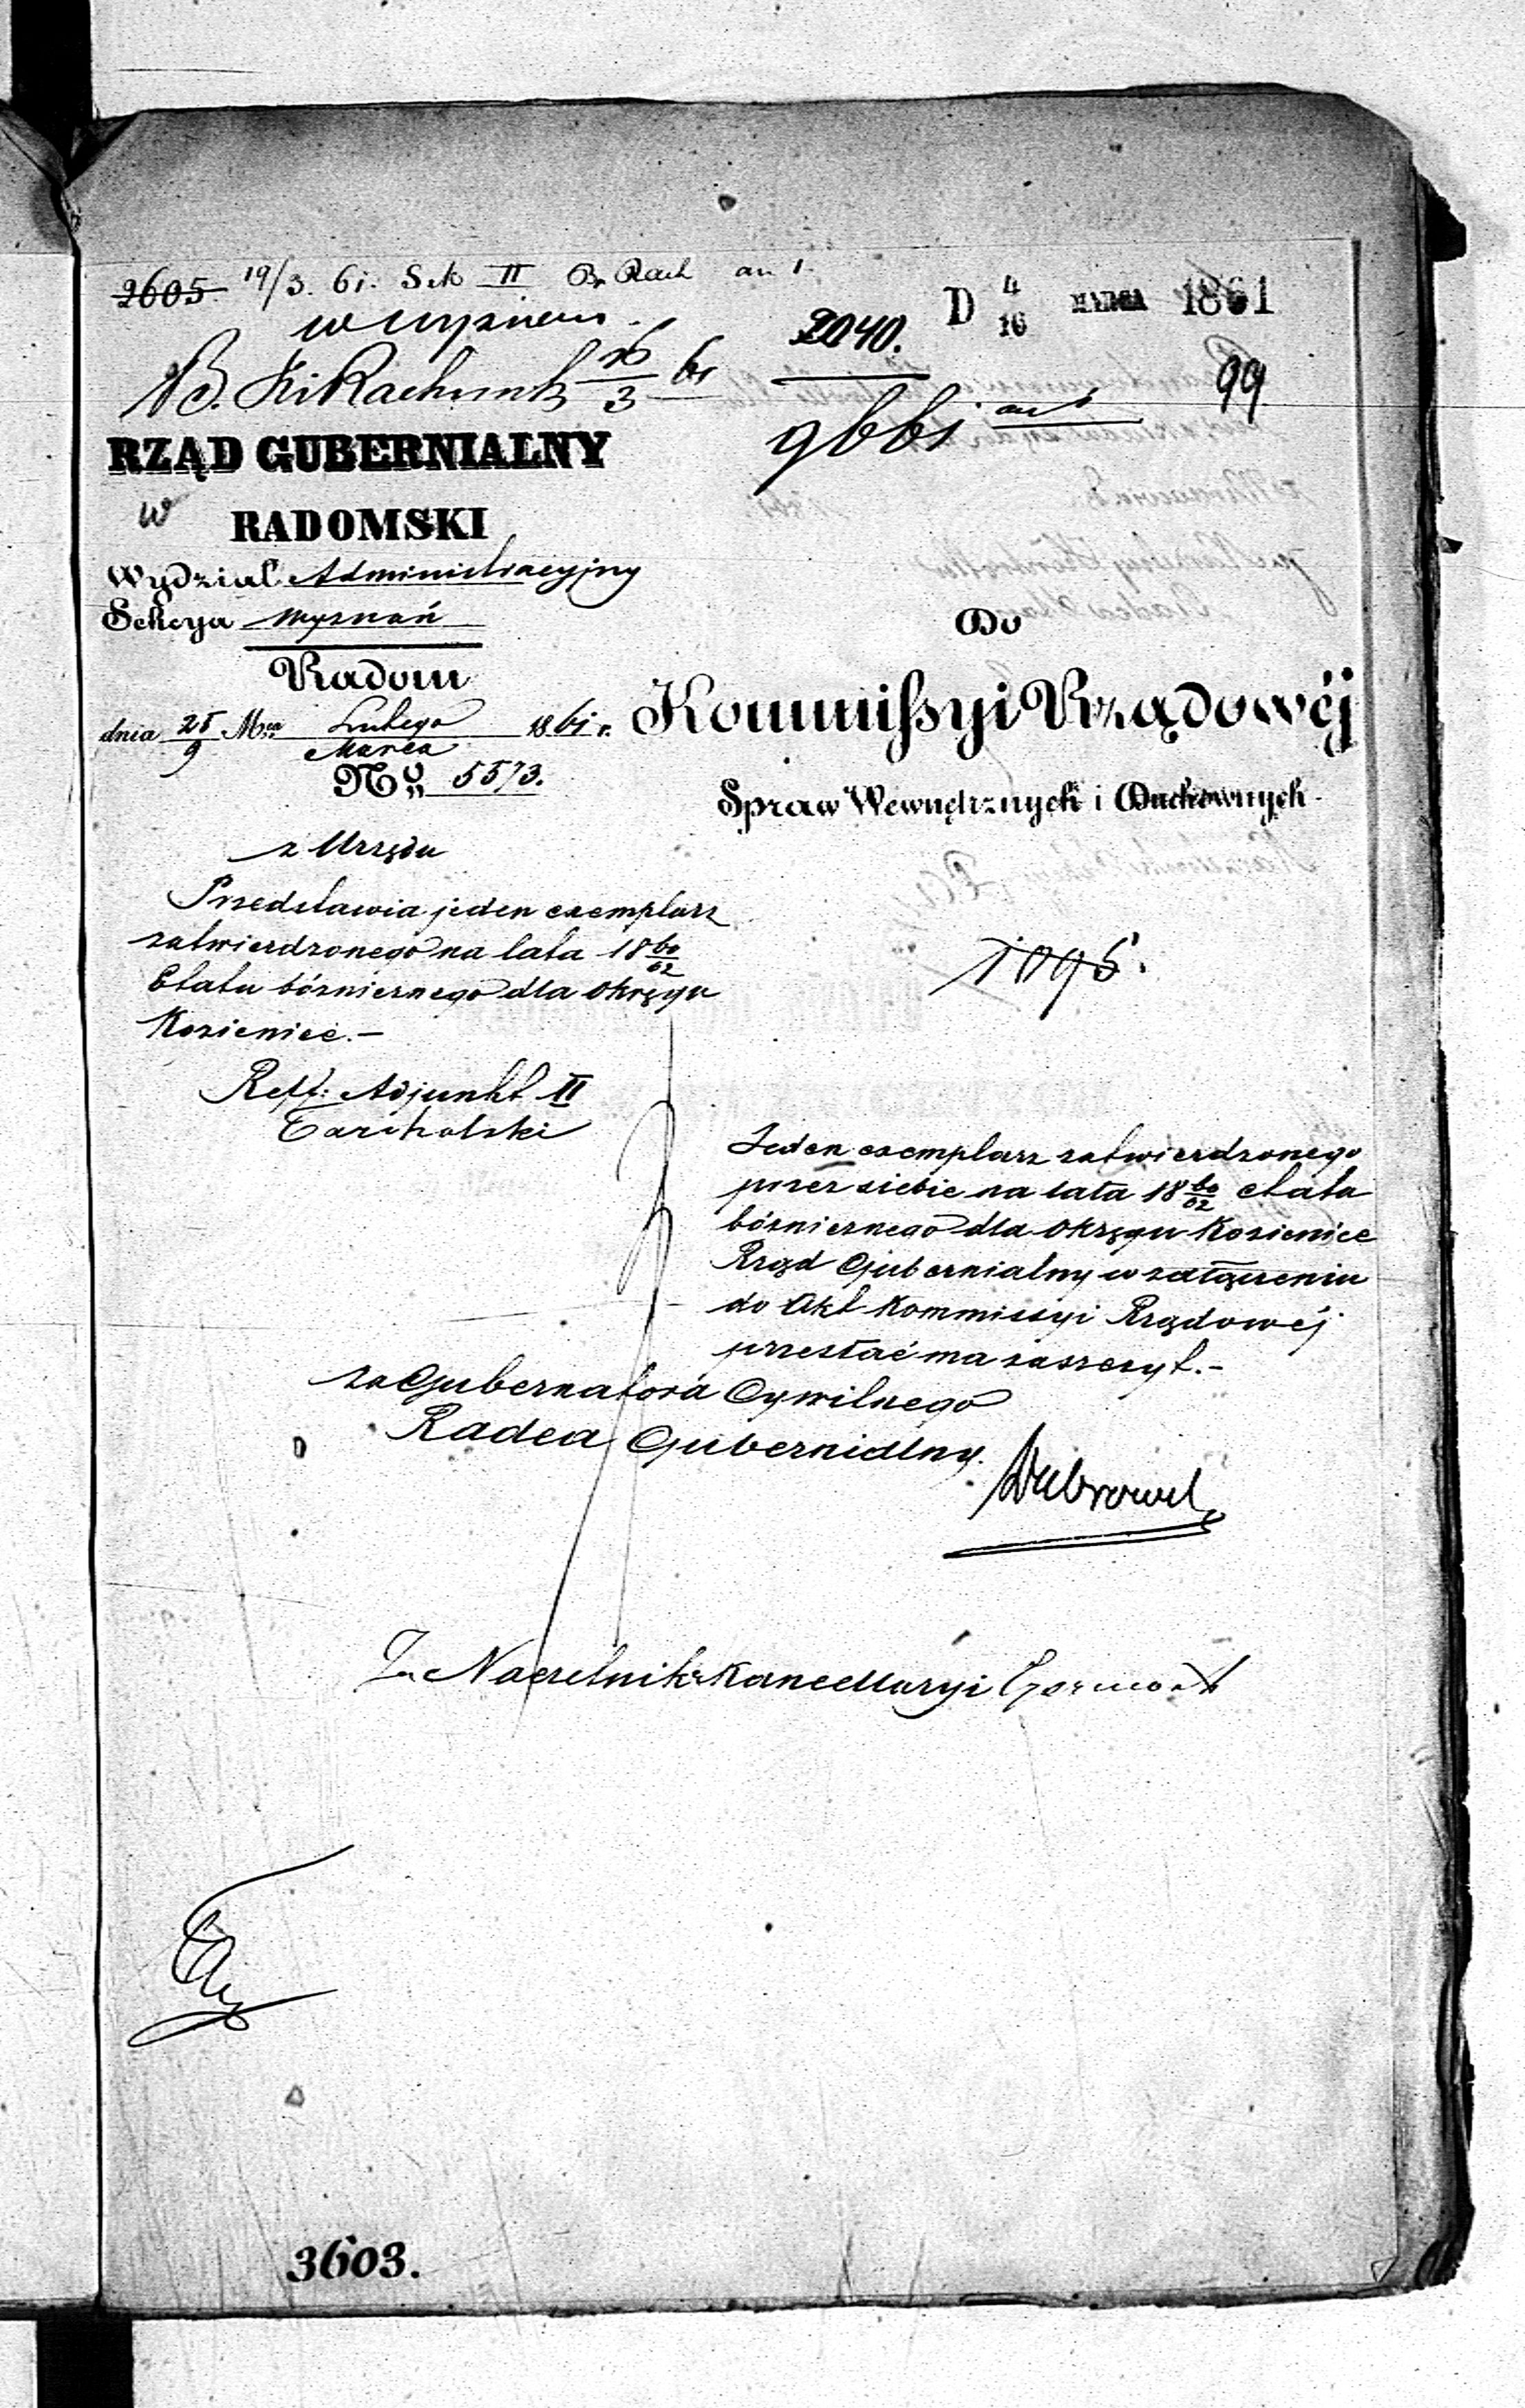 2605. 19/3. 61. Sek II B. Rach an 1.
D 4/16 MARCA 1861
2040.
99
RZĄD GUBERNIALNY
w
RADOMSKI
Wydział Administracyjny
Sekcya Wyznań
Radom
dnia 25/9 Mca Lutego/Marca 1861 r.
No 5573.
Do
Kommissyi Rządowéj
Spraw Wewnętrznych i Duchownych
z Urzędu
Przedstawia jeden exemplarz
zatwierdzonego na lata 18 60/62
Etatu bóżnicznego dla Okręgu
Kozienice.—
1096.
Reff: Adjunkt II
Tarcholski
Jeden exemplarz zatwierdzonego
przez siebie na lata 18 60/62 etatu
bóżnicznego dla Okręgu Kozienice
Rząd Gubernialny w załączeniu
do Akt Kommissyi Rządowéj
przesłać ma zaszczyt.—
za Gubernatora Cywilnego
Radca Gubernialny.
Za Naczelnika Kancellaryi
3603.